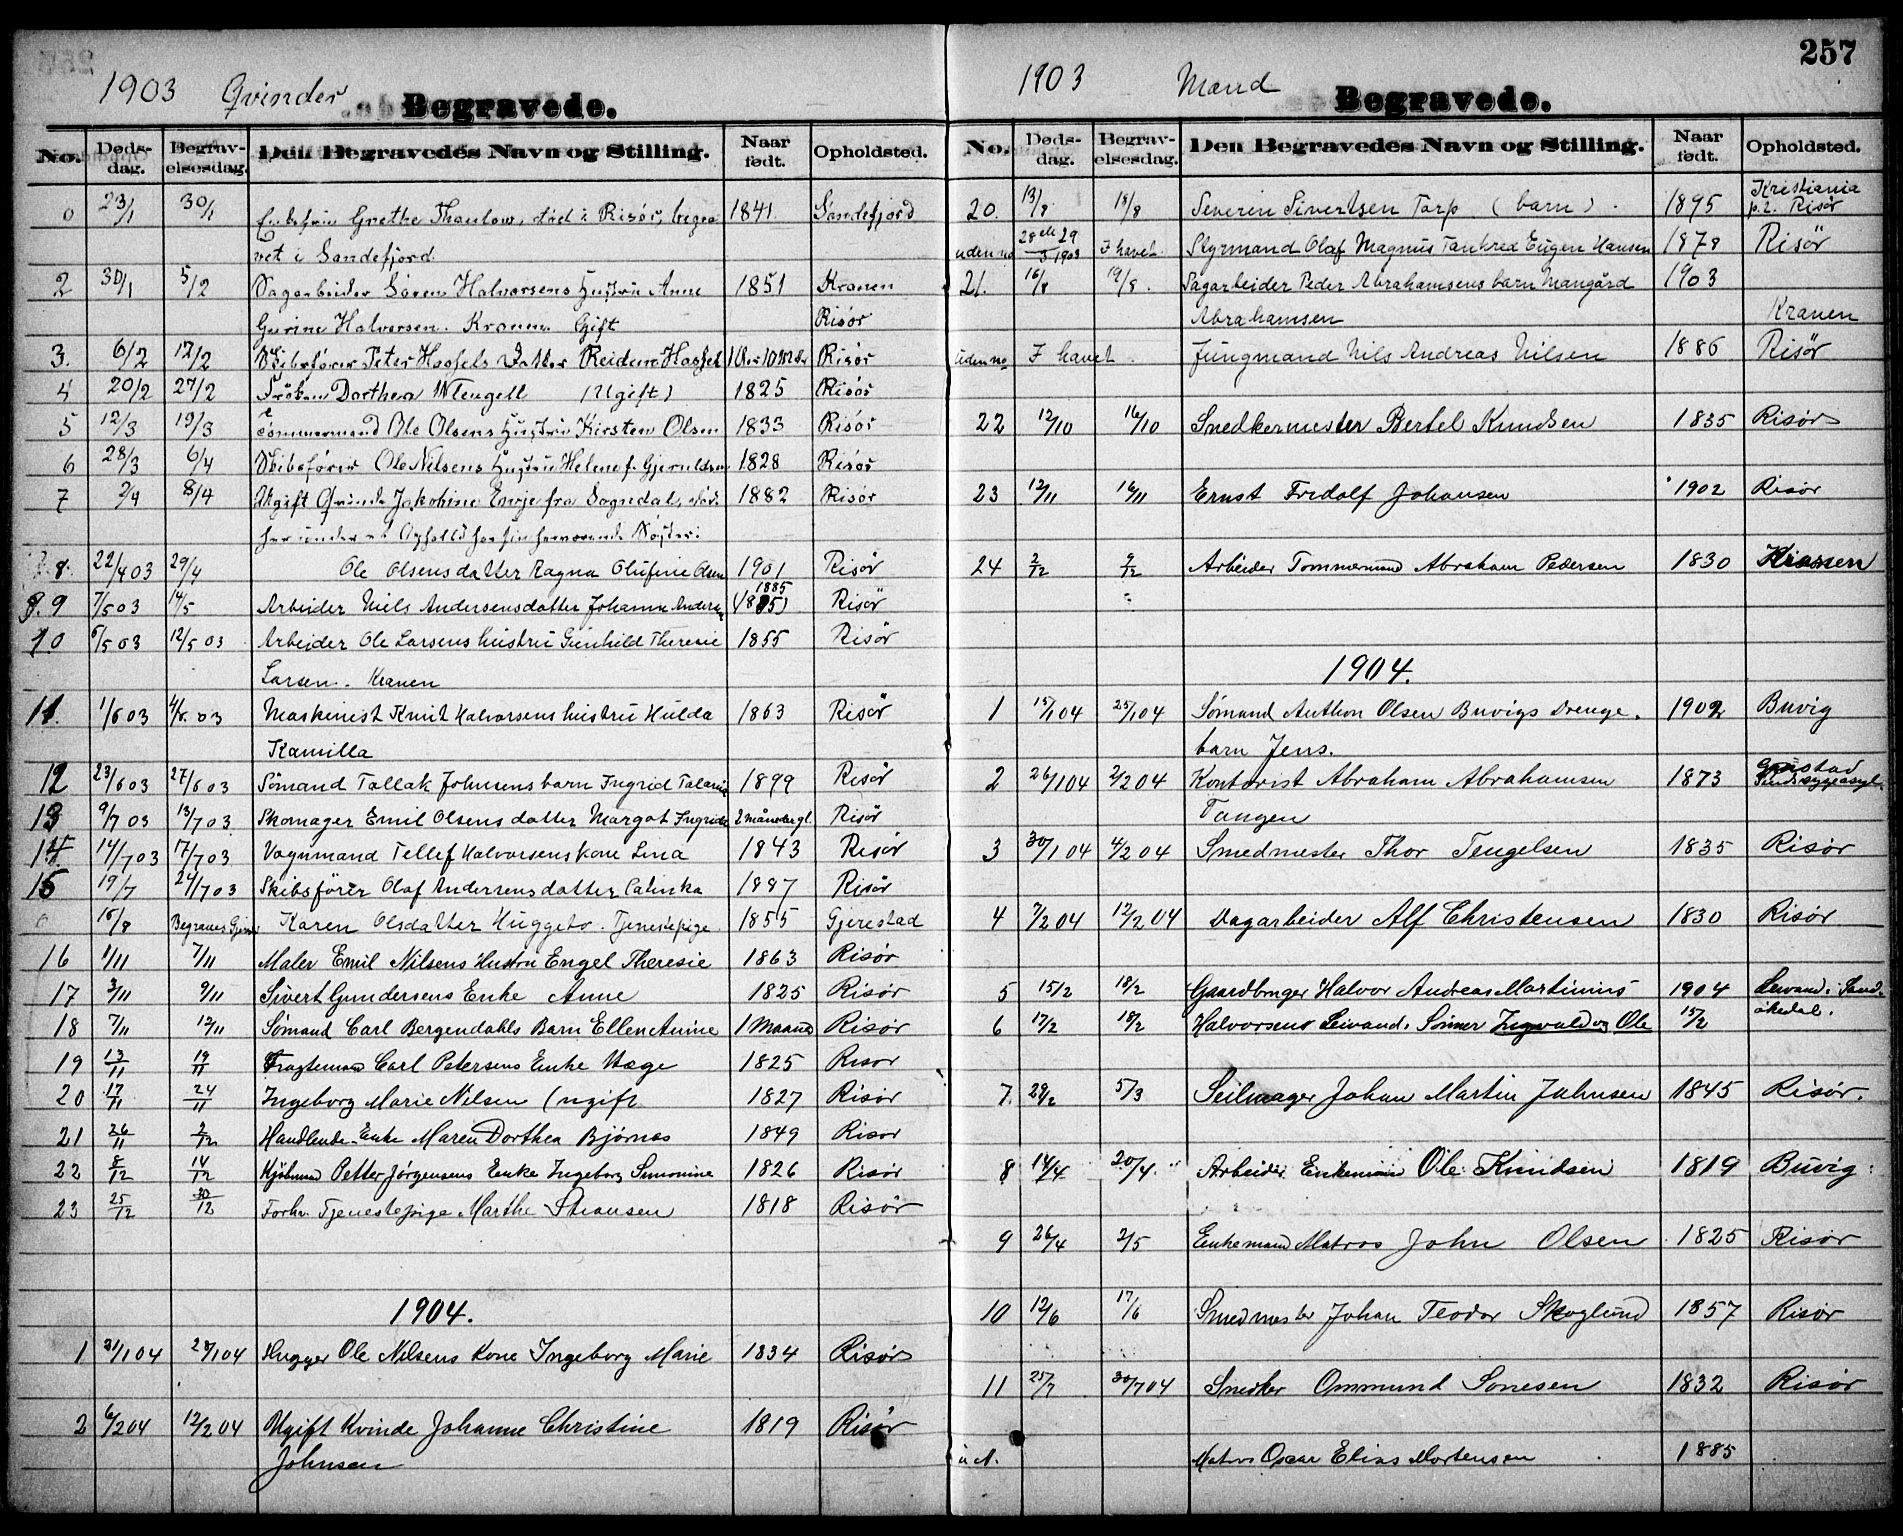 1903 Qvinder
Begravede.
No. Døds-dag. Begrav-elsesdag. Den Begravedes Navn og Stilling. Naar født. Opholdsted.
0 23/1 30/1 Grethe Thaulow, død i Risör, begra- 1841 Sandefjord
vet i Sandefjord.
2 30/1 5/2 Sagarbeider Sören Halvorsens Hustru Anne 1851 Kranen
Gurine Halvorsen. Kranen. Gift Risör
3. 6/2 12/2 Skibsfører Peter Hassels Datter Reidun Hassel Risör
4 20/2 27/2 Fröken Dorthea Stengell (Ugift) 1825 Risör
5 12/3 19/3 Tömmermand Ole Olsens Hustru Kirsten Olsen 1833 Risör
6 28/3 6/4 Skibsfører Ole Nilsens Hustru Helene f. Gjeruldsen 1828 Risör
7 2/4 8/4 Ugift Qvinde Jakobine Envje fra Sogndal, död 1882 Risör
her under et Ophold hos sin herværende Söster.
8. 22/4 03 29/4 Ole Olsens datter Ragna Olufine Olsen 1901 Risör
9 7/5 03 14/5 Arbeider Niels Andersens datter Johanne Andersen 1885 Risör
10 6/5 03 12/5 03 Arbeider Ole Larsens hustru Gunhild Theresie 1855 Risör
Larsen. Kranen
11. 1/6 03 4/6. 03 Maskinist Knut Halvorsens hustru Hulda 1863 Risör
Kamilla
12 23/6 03 27/6 03 Sömand Tallak Johnsens barn Ingrid 1899 Risör
13 9/7 03 13/7 03 Skomager Emil Olsens datter Margot Ingrid 2 måneder gl. Risör
14 14/7 03 17/7 03 Vognmand Tellef Halvorsens kone Lina 1843 Risör
15 19/7 24/7 03 Skibsfører Olaf Andersens datter Catinka 1887 Risör
0 15/8 Begraves Karen Olsdatter Huggeto. Tjenestepige. 1855 Gjerestad
16 1/11 7/11 Maler Emil Nilsens Hustru Engel Theresie 1863 Risör
17 3/11 9/11 Sivert Gundersens Enke Anne 1825 Risör
18 7/11 12/11 Sømand Carl Bergendahls Barn Ellen Anine 1 Maaned Risør
19 13/11 19/11 Fragtemand Carl Petersens Enke Hæge 1825 Risør
20 17/11 24/11 Ingeborg Marie Nilsen (ugift 1827 Risör
21 26/11 2/12 Handlende-Enke Maren Dorthea Bjørnas 1849 Risor
22 8/12 14/12 Petter Jørgensens Enke Ingeborg Simonine 1826 Risör
23 25/12 30/12 Forhv. Tjenestepige Marthe 1818 Risör
1904.
1 21/1 04 28/1 04 Hugger Ole Nilsens Kone Ingeborg Marie 1834 Risör
2 6/2 04 12/2 04 Ugift Kvinde Johanne Christine 1819 Risör
Johnsen
257
1903 Mænd
Begravede.
No. Døds-dag. Begrav-elsesdag. Den Begravedes Navn og Stilling. Naar født. Opholdsted.
20. 13/8 18/8 Severin Sivertsen Tarp (barn). 1895 Kristiania p.t. Risör
uden no 28 eller 29/3 1903 I havet. Styrmand Olaf Magnus Tankred Eugen Hansen 1878 Risör
21. 16/8 19/8. Sagarbeider Peder Abrahamsens barn Mangård 1903
Abrahamsen Kranen
uden no I havet. Jungmand Nils Andreas Nilsen 1886 Risör
22 12/10 16/10 Snedkermester Bertel Knudsen 1835 Risör
23 12/11 16/11 Ernst Fridolf Johansen 1902 Risör
24 2/12 9/12 Arbeider Tømmermand Abraham Pedersen 1830 Kranen
1904.
1 15/1 04 25/1 04 Sømand Anthon Olsen Buvigs Drenge- 1902 Buvig
barn Jens.
2 26/1 04 2/2 04 Kontorist Abraham Abrahamsen 1873 Gaustad Sindssygeasyl.
Tangen
3 30/1 04 4/2 04 Smedmester Thor Tengelsen 1835 Risör
4 7/2 04 12/2 04 Dagarbeider Alf Christensen 1830 Risör
5 15/2 18/2 Gaardbruger Halvor Andreas Martinius 1904 Leivand i Sønd-
6 17/2 18/2 Halvorsens Leivand. Sønner Ingvald og Ole 15/2 økedal.
7. 29/2 5/3 Seilmager Johan Martin Johnsen 1845 Risör.
8 14/4 20/4. Arbeider Enkemand Ole Knudsen 1819 Buvig
9 26/4 2/5 Enkemand Matros John Olsen 1825 Risör
10 12/6 17/6 Smedmester Johan Teodor Skoglund 1857 Risör
11 25/7 30/7 04 Snedker Ommund Sonesen 1832 Risör
u N. Matros Oscar Elias Mortensen 1885